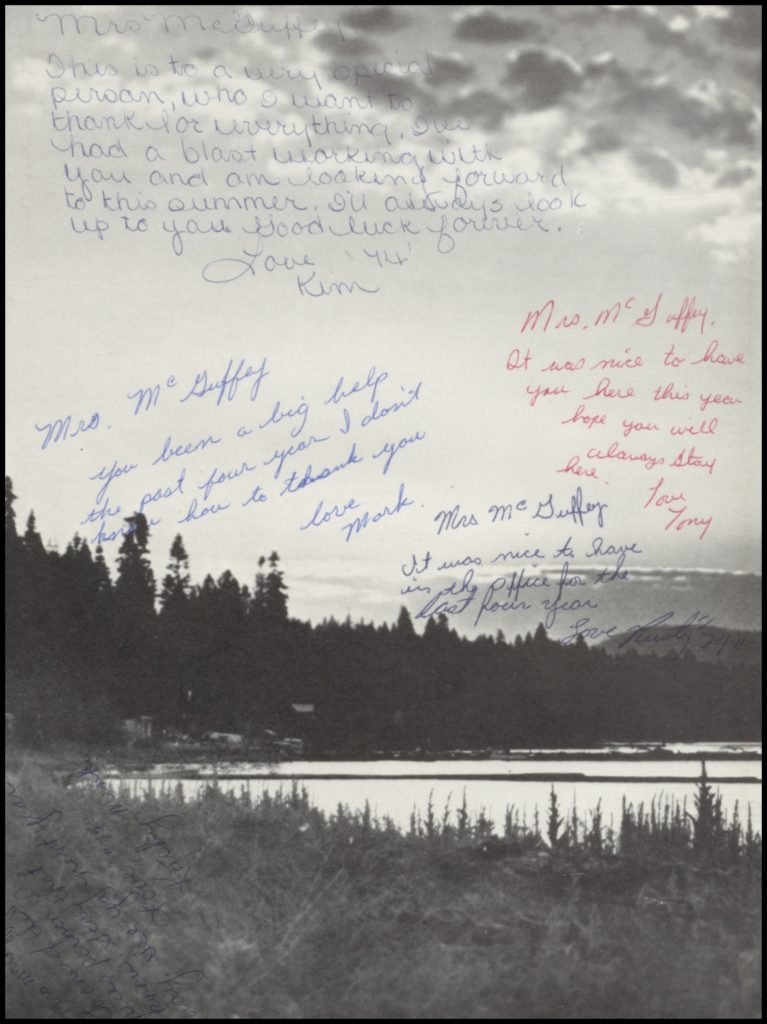 Mrs McGuffey,
This is to a very special
person, who I want to
thank for everything. I've
had a blast working with
you and am looking forward
to this summer. I'll always look
up to you. Good luck forever.
Love '74'
Kim
Mrs. McGuffey,
It was nice to have
you here this year
hope you will
always stay
here.
Love
Tony
Mrs. McGuffey
you been a big help
the past four year I don't
know how to thank you
love
Mark.
Mrs McGuffey
It was nice to have
in the office for the
last four year
Love Rusty "74"